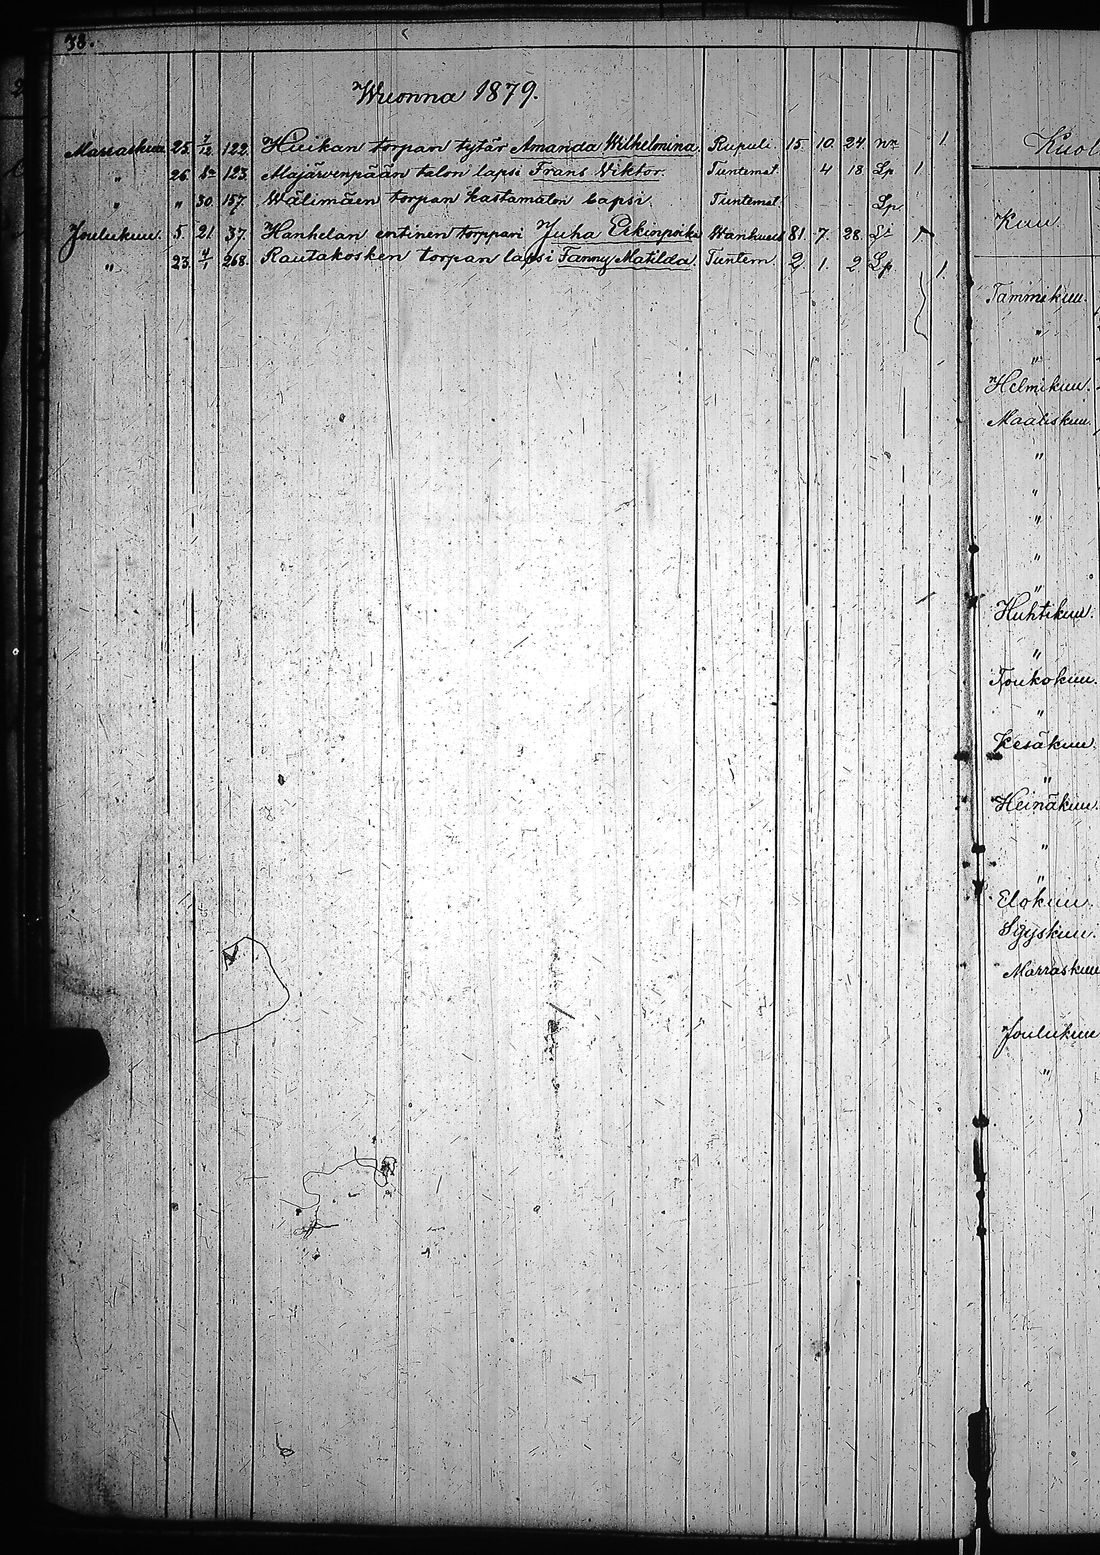 38.
Wuonna 1879.
Marraskuu 25. 7/12 122. Hiukan torpan tytär Amanda Wilhelmina Rupuli. 15. 10. 24. Nn 1
" 26. 123. Majärvenpään talon lapsi Frans Viktor. Tuntemat. 4 18 Lp 1
" " 30. 157. Wälimäen torpan kastamaton lapsi. Tuntemat Lp
Joulukuu. 5. 21. 37. Hanhelan entinen torppari Juha Erkinpoika Wanhuus 81. 7. 28. 1
" 23. 4/1 268. Rautakosken torpan lapsi Fanny Matilda. Tuntem. 2. 1. 2. Lp. 1.
Kuol
Kuu.
Tammikuu.
"
"
Helmikuu.
Maaliskuu.
"
"
"
"
"
Huhtikuu.
"
Toukokuu.
"
Kesäkuu.
"
Heinäkuu.
"
"
Elokuu.
Syyskuu.
Marraskuu
Joulukuu
"